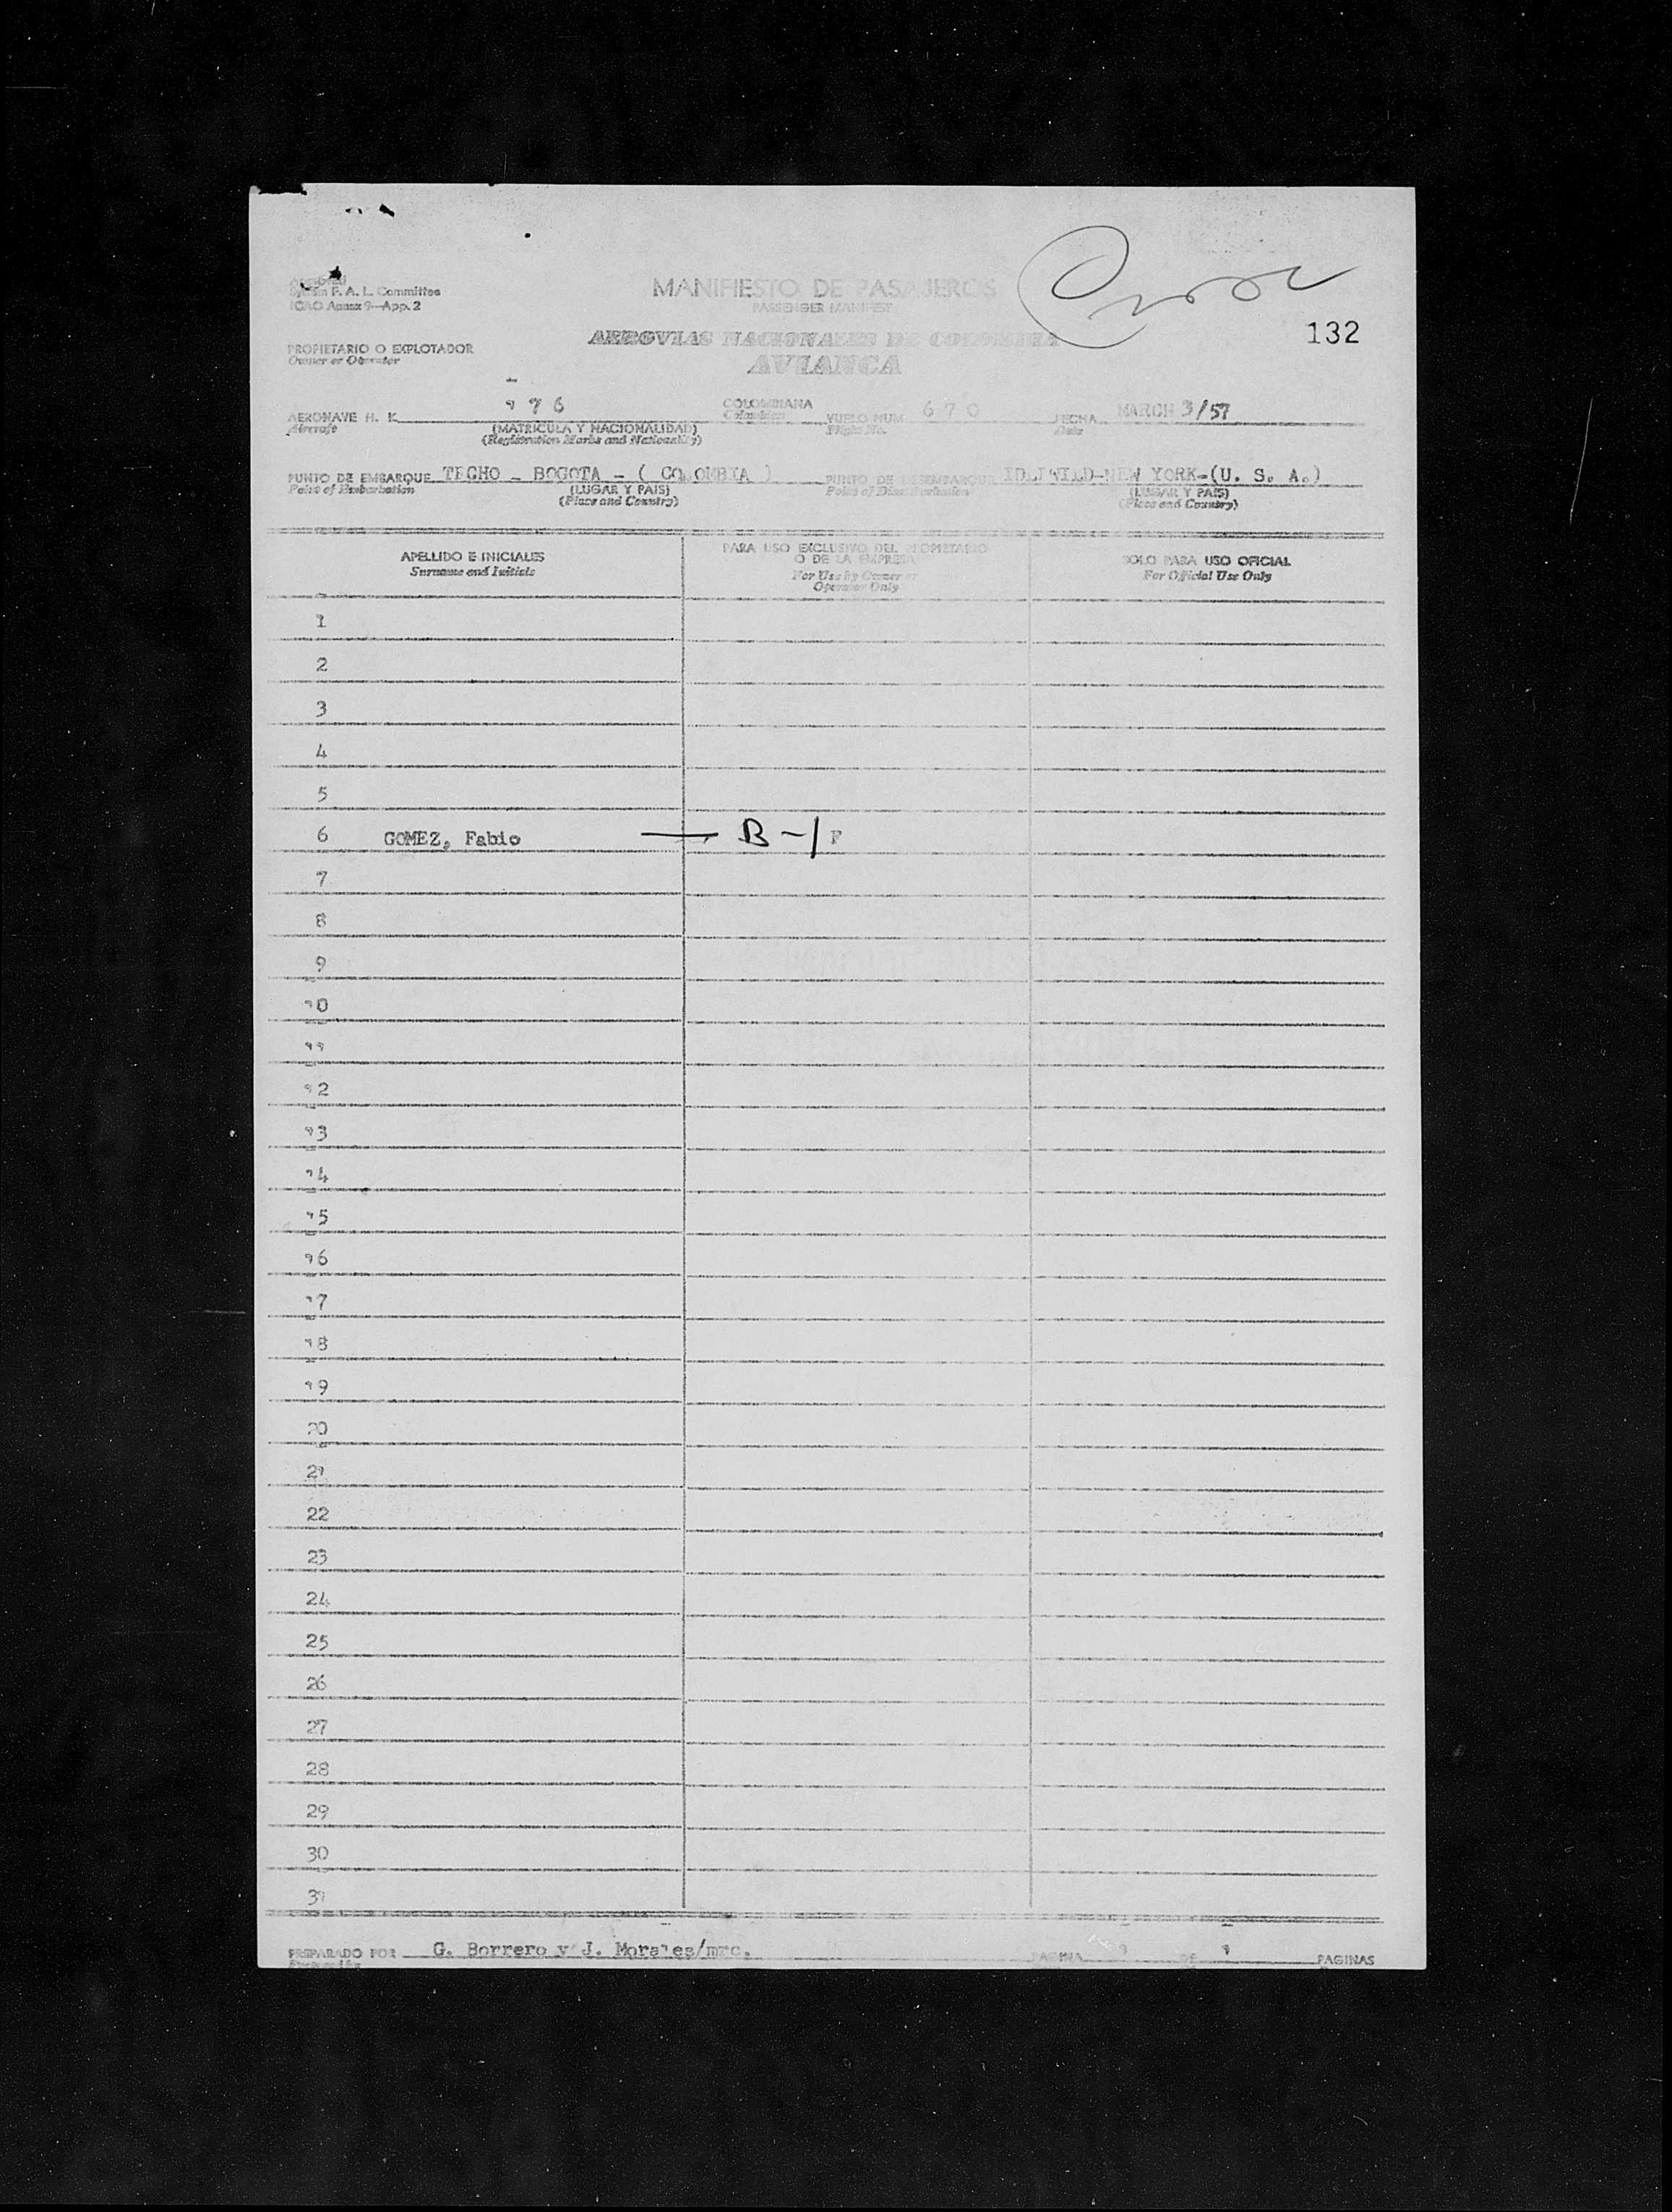 Approved
System F. A. L. Committee
ICAO Annex 9—App. 2
MANIFIESTO DE PASAJEROS
PASSENGER MANIFEST
132
PROPIETARIO O EXPLOTADOR
Owner or Operator
AEROVIAS NACIONALES DE COLOMBIA
AVIANCA
AERONAVE H. K. 176 COLOMBIANA VUELO NUM. 670 FECHA MARCH 3/57
Aircraft (MATRICULA Y NACIONALIDAD) Colombian Flight No. Date
(Registration Marks and Nationality)
PUNTO DE EMBARQUE TECHO - BOGOTA - ( COLOMBIA ) PUNTO DE DESEMBARQUE IDLIWILD-NEW YORK-(U. S. A.)
Point of Embarkation (LUGAR Y PAIS) Point of Disembarkation (LUGAR Y PAIS)
(Place and Country) (Place and Country)
APELLIDO E INICIALES
Surname and Initials
PARA USO EXCLUSIVO DEL PROPIETARIO
O DE LA EMPRESA
For Use by Owner or
Operator Only
SOLO PARA USO OFICIAL
For Official Use Only
1
2
3
4
5
6 GOMEZ, Fabio B-1 F
7
8
9
10
11
12
13
14
15
16
17
18
19
20
21
22
23
24
25
26
27
28
29
30
31
PREPARADO POR G. Borrero y J. Morales/mrc. PAGINA 1 DE 1 PAGINAS